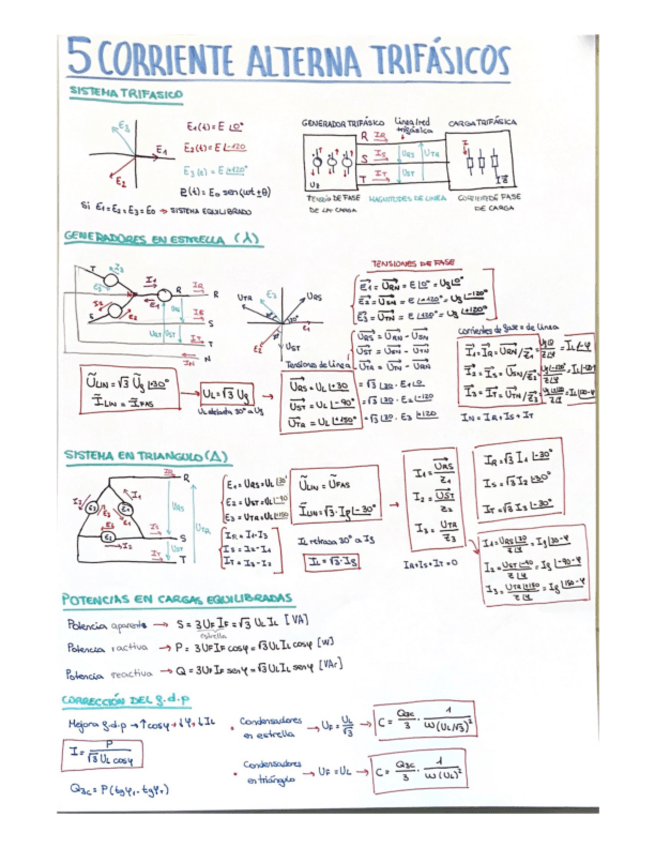 5 CORRIENTE ALTERNA TRIFÁSICOS
SISTEMA TRIFASICO
E₃
E₁
E₂
E₁(t) = E ∠0°
E₂(t) = E ∠-120
E₃(t) = E ∠+120°
e(t) = E₀ sen(ωt ± θ)
Si E₁ = E₂ = E₃ = E₀ → SISTEMA EQUILIBRADO
GENERADOR TRIFÁSICO
Linea/red trifásica
CARGA TRIFÁSICA
R
S
T
TENSIÓN DE FASE DE LA CARGA
MAGNITUDES DE LINEA
CORRIENTE DE FASE DE CARGA
GENERADORES EN ESTRELLA (⅄)
R
S
T
N
U_TR
U_RS
U_ST
TENSIONES DE FASE
E₁ = U_RN = E ∠0° = Ug ∠0°
E₂ = U_SN = E ∠-120° = Ug ∠-120°
E₃ = U_TN = E ∠120° = Ug ∠+120°
U_RS = U_RN - U_SN
U_ST = U_SN - U_TN
U_TR = U_TN - U_RN
Tensiones de Linea
U_RS = U_L ∠+30 = √3 ∠30 · E₁ ∠0
U_ST = U_L ∠-90° = √3 ∠30 · E₂ ∠-120
U_TR = U_L ∠+150° = √3 ∠30 · E₃ ∠120
Corrientes de fase = de Linea
I₁ = I_R = U_RN/Z₁
I₂ = I_S = U_SN/Z₂
I₃ = I_T = U_TN/Z₃
I_N = I_R + I_S + I_T
U_LIN = √3 Ug ∠+30°
I_LIN = I_FAS
U_L = √3 Ug
SISTEMA EN TRIANGULO (Δ)
R
S
T
E₁ = U_RS = U_L ∠30°
E₂ = U_ST = U_L ∠-90
E₃ = U_TR = U_L ∠150
I_R = I₁ - I₃
I_S = I₂ - I₁
I_T = I₃ - I₂
U_LIN = U_FAS
I_LIN = √3 · Ig ∠-30°
I_L retrasa 30° a Ig
I_L = √3 · Ig
I₁ = U_RS/Z₁
I₂ = U_ST/Z₂
I₃ = U_TR/Z₃
I_R + I_S + I_T = 0
I_R = √3 I₁ ∠-30°
I_S = √3 I₂ ∠-30°
I_T = √3 I₃ ∠-30°
I₁ = U_RS ∠30 / Z∠φ = Ig ∠30-φ
I₂ = U_ST ∠-90 / Z∠φ = Ig ∠-90-φ
I₃ = U_TR ∠150 / Z∠φ = Ig ∠150-φ
POTENCIAS EN CARGAS EQUILIBRADAS
Potencia aparente → S = 3 U_F I_F = √3 U_L I_L [VA]
estrella
Potencia ractiva → P = 3 U_F I_F cosφ = √3 U_L I_L cosφ [W]
Potencia reactiva → Q = 3 U_F I_F senφ = √3 U_L I_L senφ [VAr]
CORRECCIÓN DEL g.d.p
Mejora g.d.p → ↑cosφ + ↓φ, ↓I_L
I = P / √3 U_L cosφ
Q₃c = P (tgφ₁ - tgφ₂)
• Condensadores en estrella → U_F = U_L/√3 → C = Q₃c/3 · 1/ω(U_L/√3)²
• Condensadores en triángulo → U_F = U_L → C = Q₃c/3 · 1/ω(U_L)²